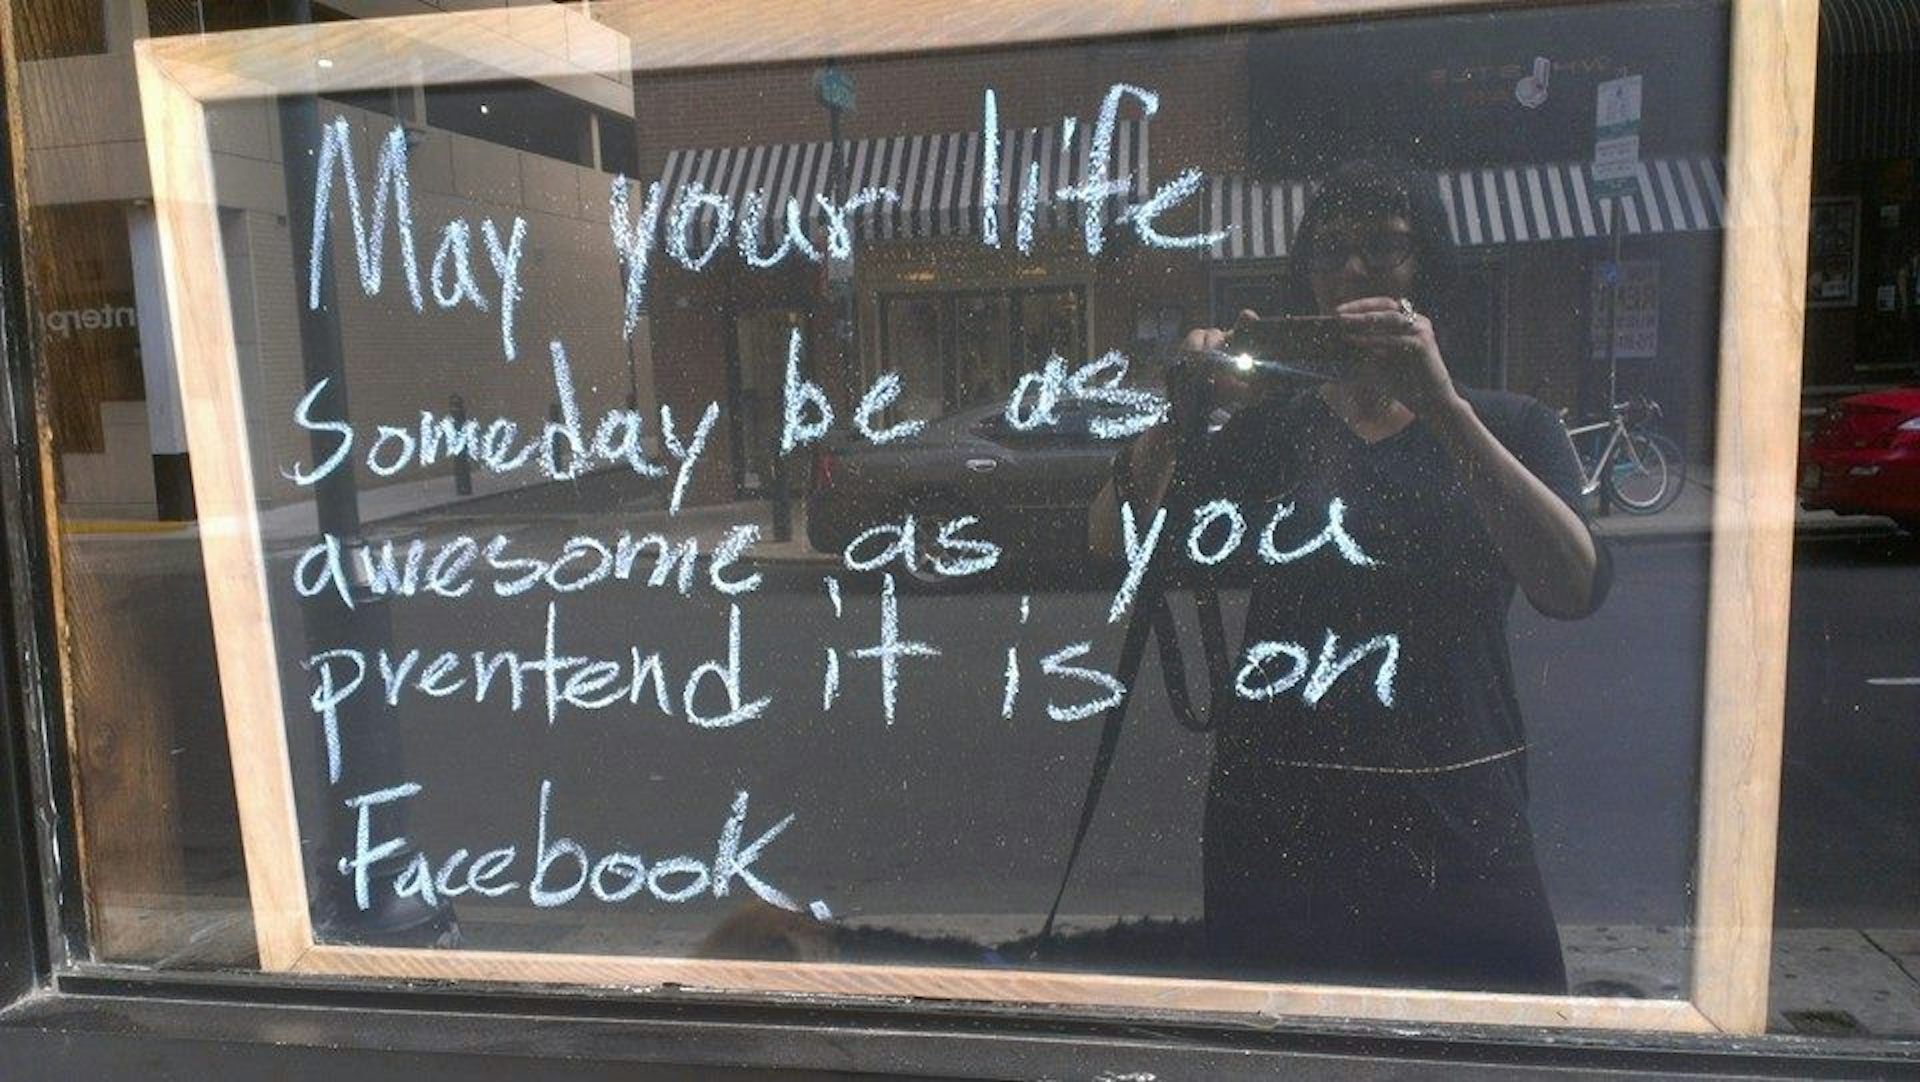 May your life
someday be as
awesome as you
prentend it is on
Facebook.
nterpr